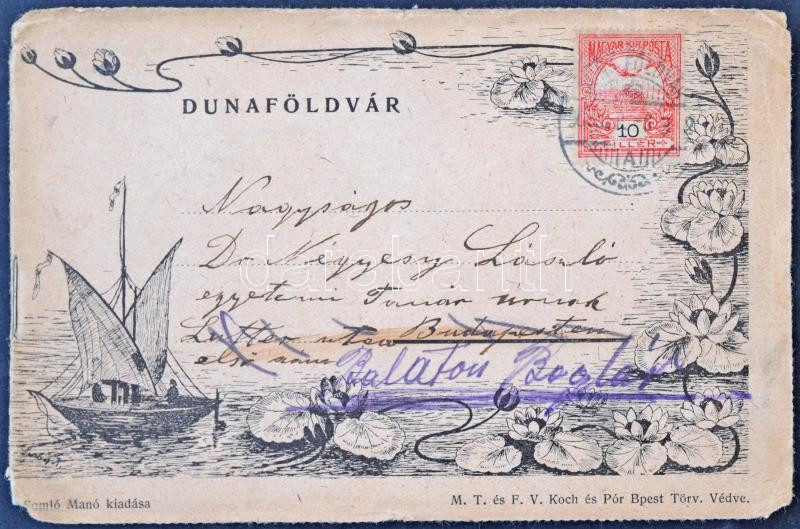 DUNAFÖLDVÁR
MAGYAR KIR. POSTA
10
FILLÉR
Nagyságos
Dr Négyesy László
egyetemi Tanár úrnak
Luther utca Budapesten
első
Balaton Boglár
darabanth
Somló Manó kiadása
M. T. és F. V. Koch és Pór Bpest Törv. Védve.